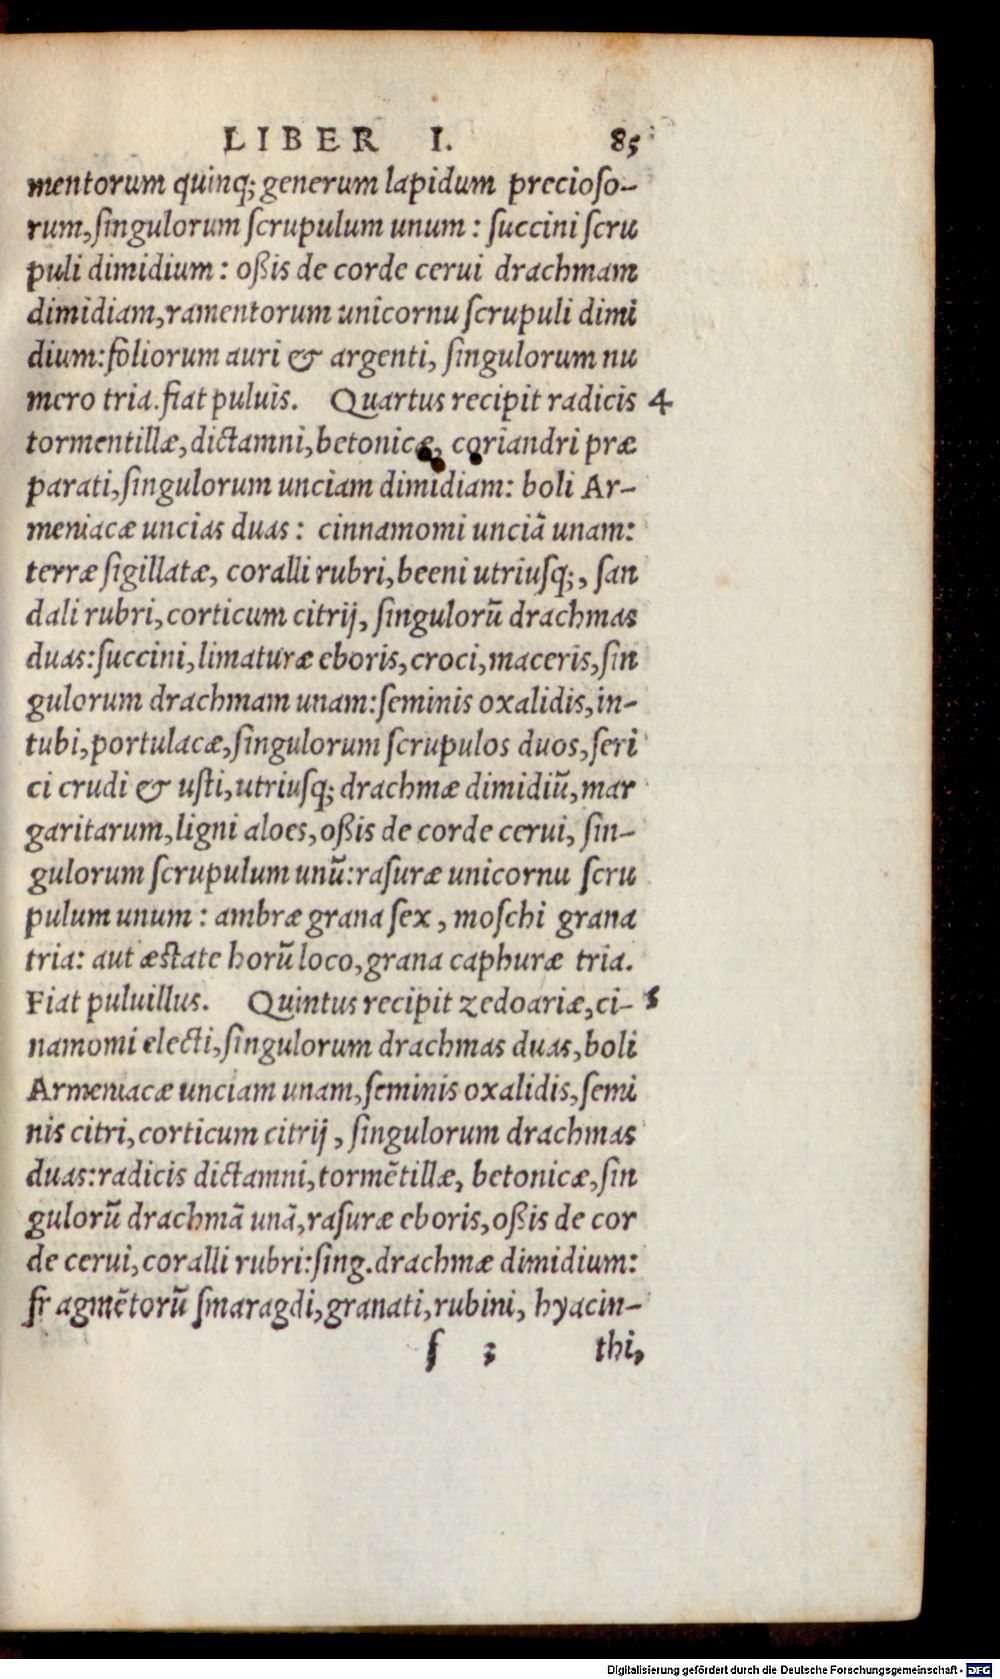 LIBER I. 85
mentorum quinq; generum lapidum precioſo-
rum, ſingulorum ſcrupulum unum: ſuccini ſcru
puli dimidium: oßis de corde cerui drachmam
dimidiam, ramentorum unicornu ſcrupuli dimi
dium: foliorum auri & argenti, ſingulorum nu
mero tria. fiat puluis. Quartus recipit radicis 4
tormentillæ, dictamni, betonicæ, coriandri præ
parati, ſingulorum unciam dimidiam: boli Ar-
meniacæ uncias duas: cinnamomi unciã unam:
terræ ſigillatæ, coralli rubri, beeni utriuſq;, ſan
dali rubri, corticum citrij, ſingulorũ drachmas
duas: ſuccini, limaturæ eboris, croci, maceris, ſin
gulorum drachmam unam: ſeminis oxalidis, in-
tubi, portulacæ, ſingulorum ſcrupulos duos, ſeri
ci crudi & uſti, utriuſq; drachmæ dimidiũ, mar
garitarum, ligni aloes, oßis de corde cerui, ſin-
gulorum ſcrupulum unũ: raſuræ unicornu ſcru
pulum unum: ambræ grana ſex, moſchi grana
tria: aut æſtate horũ loco, grana caphuræ tria.
Fiat puluillus. Quintus recipit zedoariæ, ci- 5
namomi electi, ſingulorum drachmas duas, boli
Armeniacæ unciam unam, ſeminis oxalidis, ſemi
nis citri, corticum citrij, ſingulorum drachmas
duas: radicis dictamni, tormẽtillæ, betonicæ, ſin
gulorũ drachmã unã, raſuræ eboris, oßis de cor
de cerui, coralli rubri: ſing. drachmæ dimidium:
fragmẽtorũ ſmaragdi, granati, rubini, hyacin-
f 3 thi,
Digitalisierung gefördert durch die Deutsche Forschungsgemeinschaft - DFG